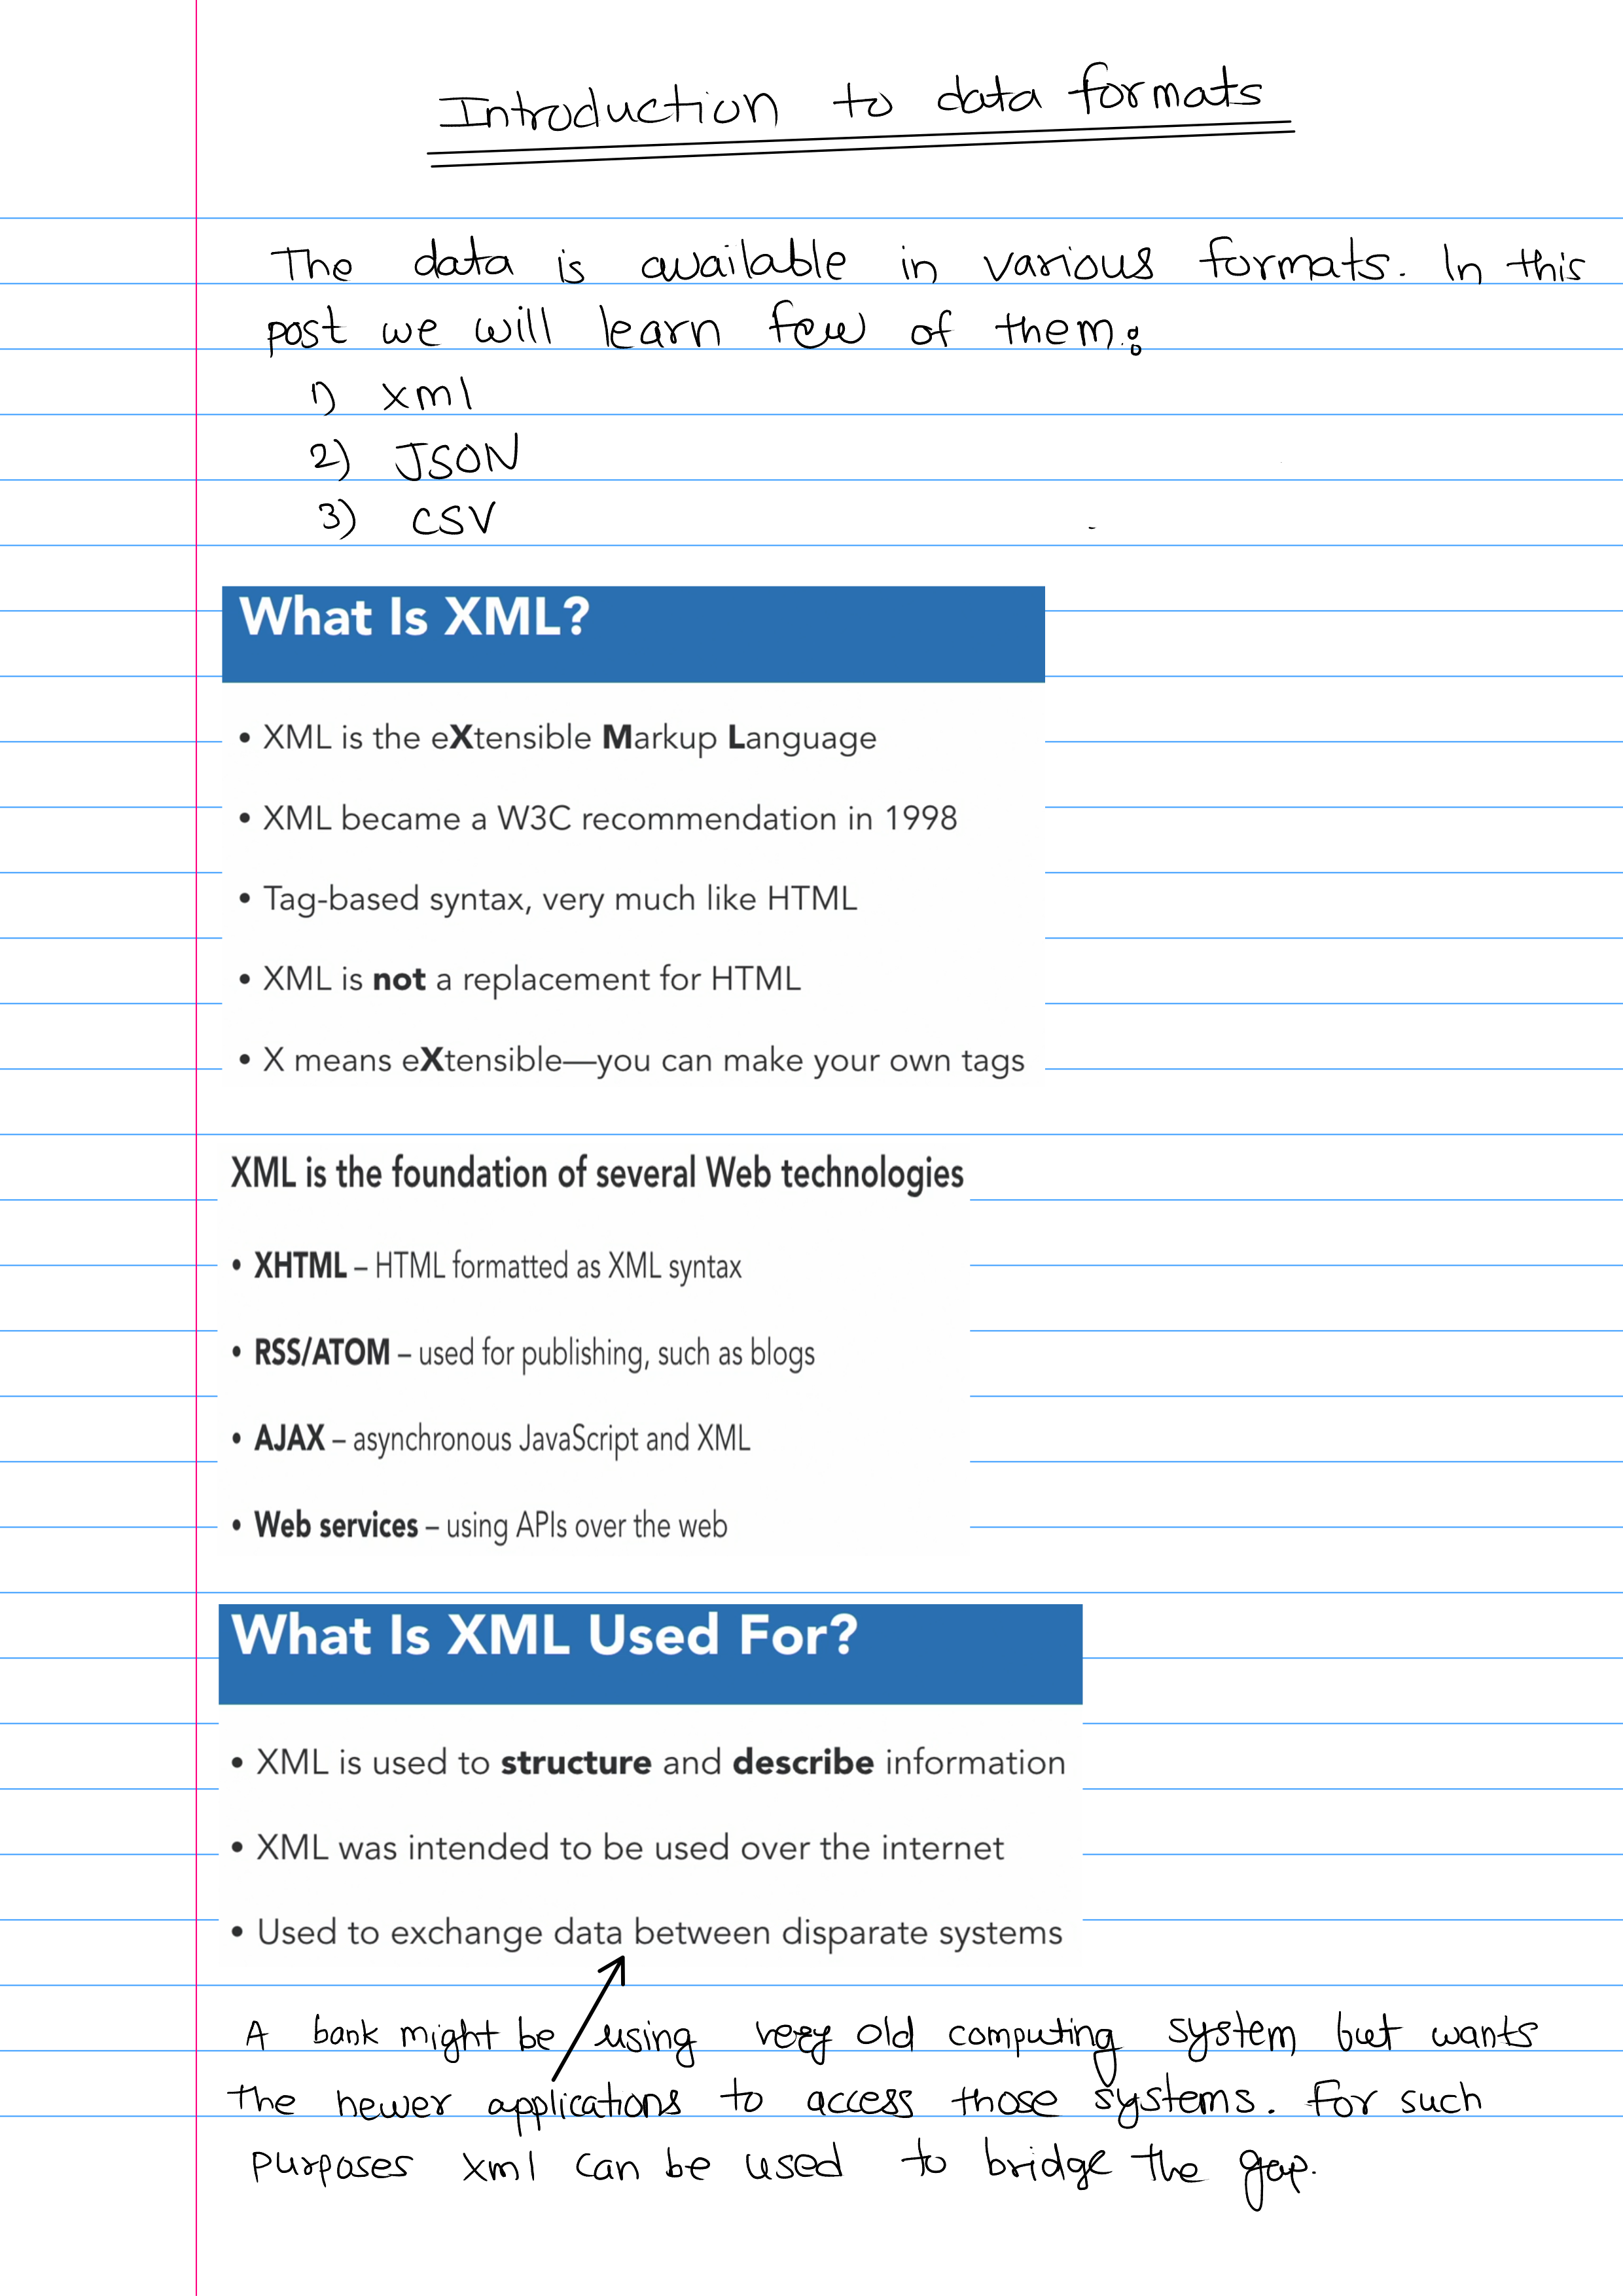 Introduction to data formats
The data is available in various formats. In this
post we will learn few of them:
1) xml
2) JSON
3) CSV
What Is XML?
• XML is the eXtensible Markup Language
• XML became a W3C recommendation in 1998
• Tag-based syntax, very much like HTML
• XML is not a replacement for HTML
• X means eXtensible—you can make your own tags
XML is the foundation of several Web technologies
• XHTML – HTML formatted as XML syntax
• RSS/ATOM – used for publishing, such as blogs
• AJAX – asynchronous JavaScript and XML
• Web services – using APIs over the web
What Is XML Used For?
• XML is used to structure and describe information
• XML was intended to be used over the internet
• Used to exchange data between disparate systems
A bank might be using very old computing system but wants
the newer applications to access those systems. For such
purposes xml can be used to bridge the gap.